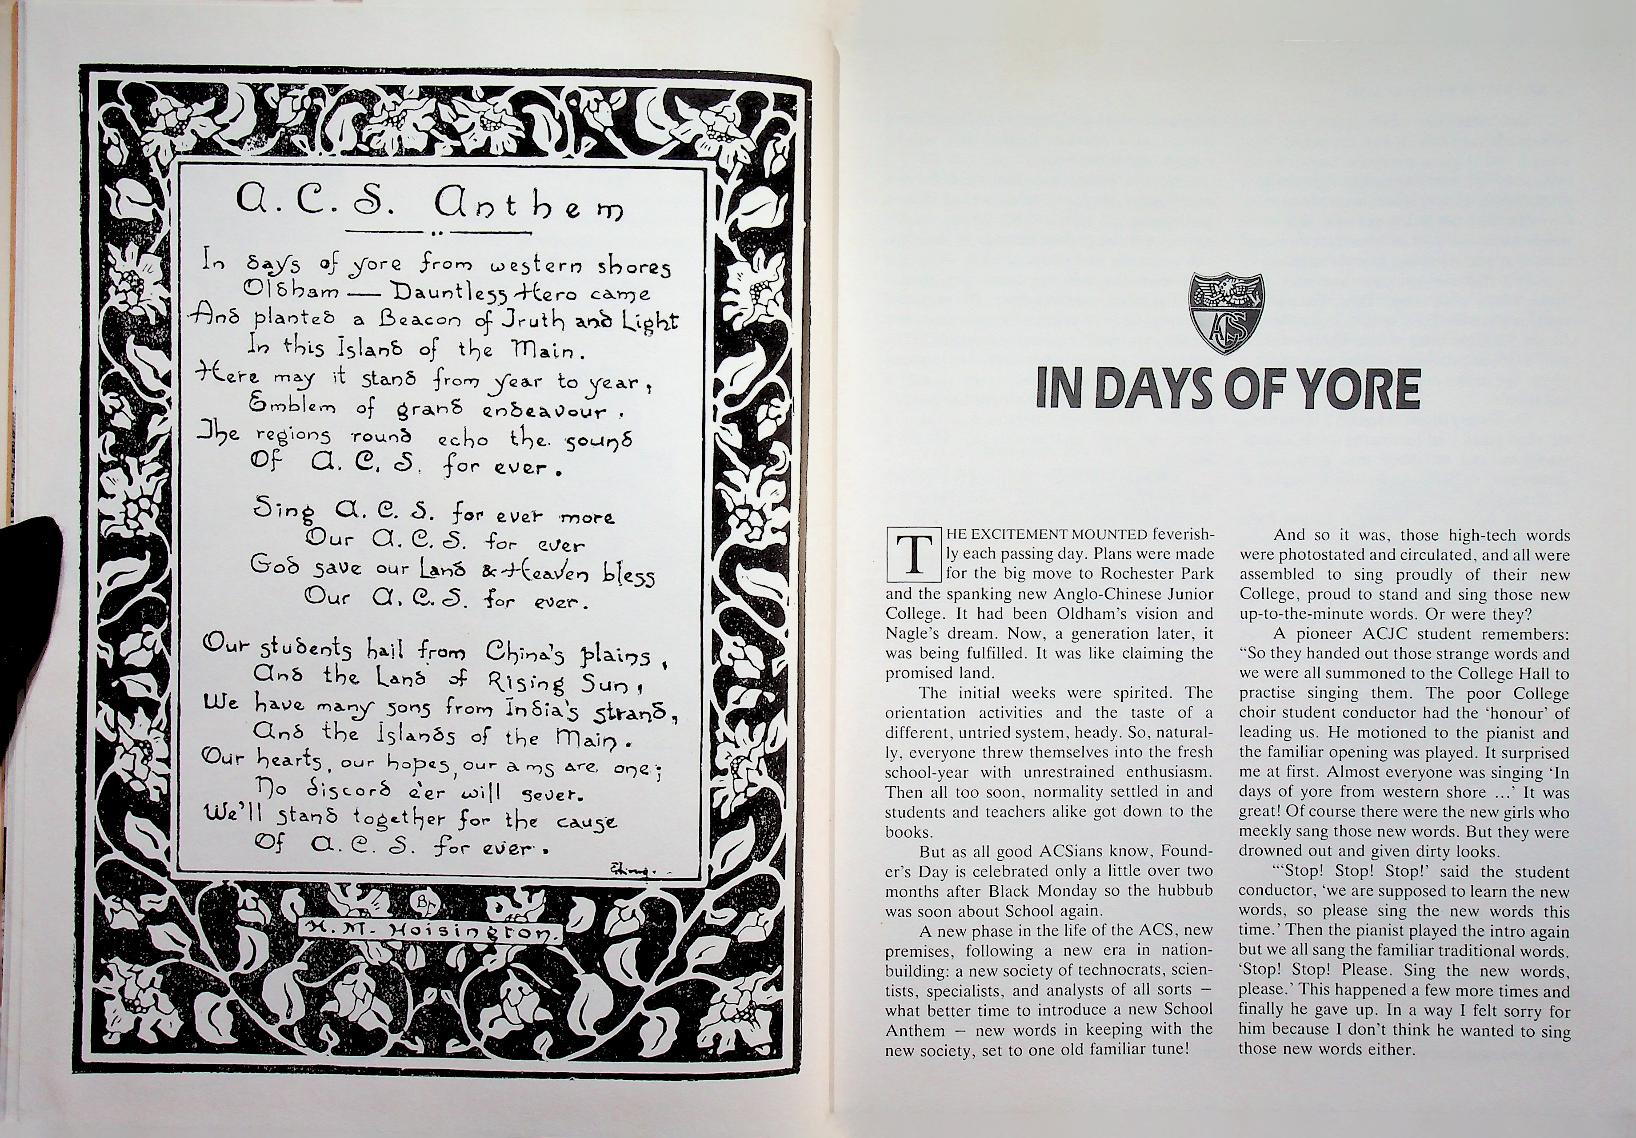 A. C. S. Anthem
In days of yore from western shores
Oldham — Dauntless Hero came
And planted a Beacon of Truth and Light
In this Island of the Main.
Here may it stand from year to year,
Emblem of grand endeavour.
The regions round echo the sound
Of A. C. S. for ever.
Sing A. C. S. for ever more
Our A. C. S. for ever
God save our Land & Heaven bless
Our A. C. S. for ever.
Our students hail from China's plains,
And the Land of Rising Sun,
We have many sons from India's strand,
And the Islands of the Main.
Our hearts, our hopes, our aims are one;
No discord e'er will sever.
We'll stand together for the cause
Of A. C. S. for ever.
H. M. Hoisington.
ACS
IN DAYS OF YORE
THE EXCITEMENT MOUNTED feverish-
ly each passing day. Plans were made
for the big move to Rochester Park
and the spanking new Anglo-Chinese Junior
College. It had been Oldham's vision and
Nagle's dream. Now, a generation later, it
was being fulfilled. It was like claiming the
promised land.
The initial weeks were spirited. The
orientation activities and the taste of a
different, untried system, heady. So, natural-
ly, everyone threw themselves into the fresh
school-year with unrestrained enthusiasm.
Then all too soon, normality settled in and
students and teachers alike got down to the
books.
But as all good ACSians know, Found-
er's Day is celebrated only a little over two
months after Black Monday so the hubbub
was soon about School again.
A new phase in the life of the ACS, new
premises, following a new era in nation-
building: a new society of technocrats, scien-
tists, specialists, and analysts of all sorts —
what better time to introduce a new School
Anthem — new words in keeping with the
new society, set to one old familiar tune!
And so it was, those high-tech words
were photostated and circulated, and all were
assembled to sing proudly of their new
College, proud to stand and sing those new
up-to-the-minute words. Or were they?
A pioneer ACJC student remembers:
"So they handed out those strange words and
we were all summoned to the College Hall to
practise singing them. The poor College
choir student conductor had the 'honour' of
leading us. He motioned to the pianist and
the familiar opening was played. It surprised
me at first. Almost everyone was singing 'In
days of yore from western shore ...' It was
great! Of course there were the new girls who
meekly sang those new words. But they were
drowned out and given dirty looks.
"'Stop! Stop! Stop!' said the student
conductor, 'we are supposed to learn the new
words, so please sing the new words this
time.' Then the pianist played the intro again
but we all sang the familiar traditional words.
'Stop! Stop! Please. Sing the new words,
please.' This happened a few more times and
finally he gave up. In a way I felt sorry for
him because I don't think he wanted to sing
those new words either.